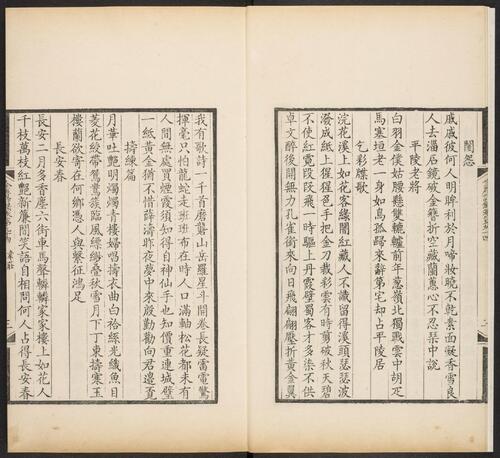 閨怨
戚戚彼何人明眸利於月啼妝曉不乾素面凝香雪良
人去淄右鏡破金簪折空藏蘭蕙心不忍琴中說
平陵老將
白羽金僕姑腰懸雙轆轤前年蔥嶺北獨戰雲中胡疋
馬塞垣老一身如鳥孤歸來辭第宅却占平陵居
乞彩牋歌
浣花溪上如花客綠闇紅藏人不識留得溪頭瑟瑟波
潑成紙上猩猩色手把金刀裁彩雲有時剪破秋天碧
不使紅霓段段飛一時驅上丹霞壁蜀客才多染不供
卓文醉後開無力孔雀銜來向日飛翩翩壓折黃金翼
我有歌詩一千首磨礱山岳羅星斗開卷長疑雷電驚
揮毫只怕龍蛇走班班布在時人口滿軸松花都未有
人間無處買煙霞須知得自神仙手也知價重連城璧
一紙黃金猶不惜薛濤昨夜夢中來殷勤勸向君邊覓
擣練篇
月華吐艷明燭燭青樓婦唱擣衣曲白袷絲光織魚目
菱花綬帶鴛鴦簇臨風縹緲疊秋雪月下丁東擣寒玉
樓蘭欲寄在何鄉憑人與繫征鴻足
長安春
長安二月多香塵六街車馬聲轔轔家家樓上如花人
千枝萬枝紅艷新簾間笑語自相問何人占得長安春